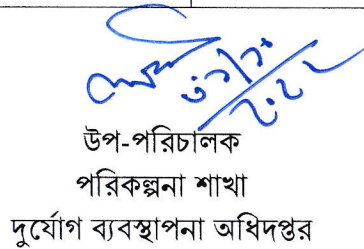 উপ-পরিচালক
পরিকল্পনা শাখা
দুর্যোগ ব্যবস্থাপনা অধিদপ্তর